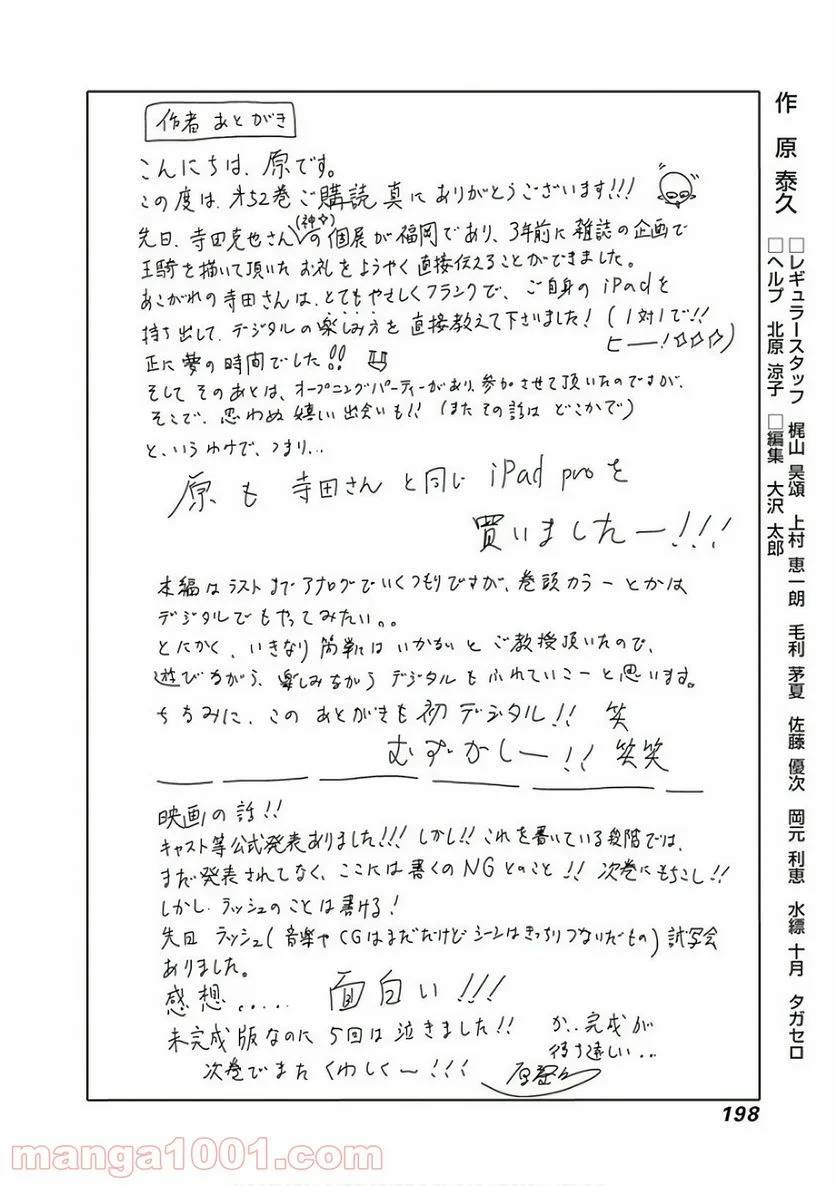 作者 あとがき
こんにちは、原です。
この度は、オ52巻ご購読真にありがとうございます!!!
先日、寺田克也さん(神☆)の個展が福岡であり、3年前に雑誌の企画で
王騎を描いて頂いたお礼をようやく直接伝えることができました。
あこがれの寺田さんは、とてもやさしくフランクで、ご自身のiPadを
持ち出して、デジタルの楽しみ方を直接教えて下さいました!(1対1で!!
ヒー!☆☆☆)
正に夢の時間でした!!
そしてそのあとは、オープニングパーティーがあり、参加させて頂いたのですが、
そこで、思わぬ嬉しい出会いも!!(またその話はどこかで)
と、いうわけで、つまり...
原も寺田さんと同じiPad proを
買いましたー!!!
本編はラストまでアナログでいくつもりですが、巻頭カラーとかは
デジタルでもやってみたい。。
とにかく、いきなり簡単にはいかないとご教授頂いたので、
遊びながら、楽しみながらデジタルもふれていこーと思います。
ちなみに、このあとがきも初デジタル!! 笑
むずかしー!! 笑笑
映画の話!!
キャスト等公式発表ありました!!! しかし!! これを書いている段階では、
まだ発表されてなく、ここには書くのNGとのこと!! 次巻にもちこし!!
しかし、ラッシュのことは書ける!
先日ラッシュ(音楽やCGはまだだけどシーンはきっちりつないだもの)試写会
ありました。
感想..... 面白い!!!
未完成版なのに5回は泣きました!! か..完成が
待ち遠しい...
次巻でまたくわしくー!!! 原泰久
作 原 泰久
□レギュラースタッフ 梶山 昊頌 上村 恵一朗 毛利 茅夏 佐藤 優次 岡元 利恵 水縹 十月 タガセロ
□ヘルプ 北原 涼子 □編集 大沢 太郎
198
manga1001.com